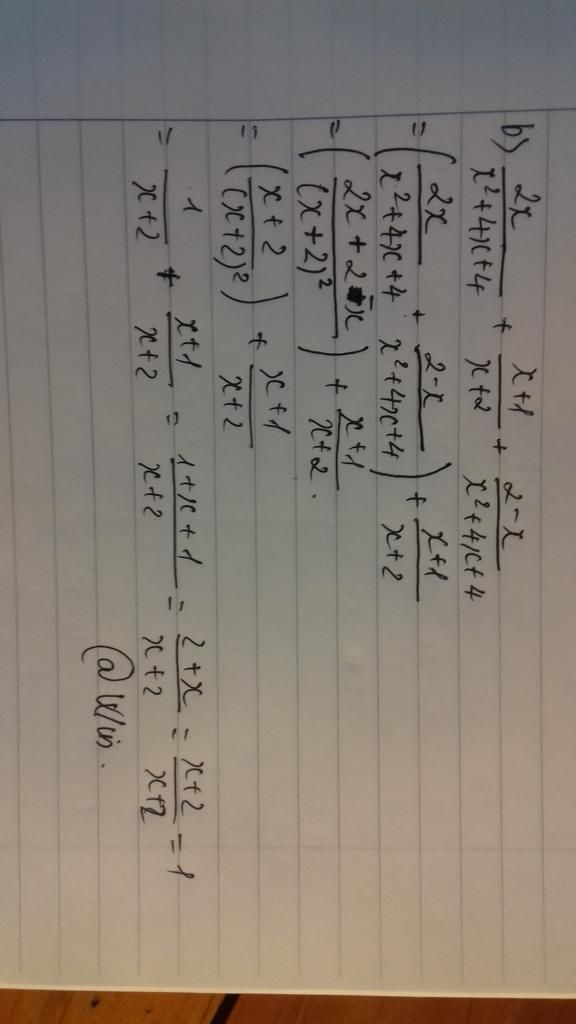 b) 2x/(x²+4x+4) + (x+1)/(x+2) + (2-x)/(x²+4x+4)
= (2x/(x²+4x+4) + (2-x)/(x²+4x+4)) + (x+1)/(x+2)
= ((2x+2-x)/(x+2)²) + (x+1)/(x+2).
= ((x+2)/(x+2)²) + (x+1)/(x+2)
= 1/(x+2) + (x+1)/(x+2) = (1+x+1)/(x+2) = (2+x)/(x+2) = (x+2)/(x+2) = 1